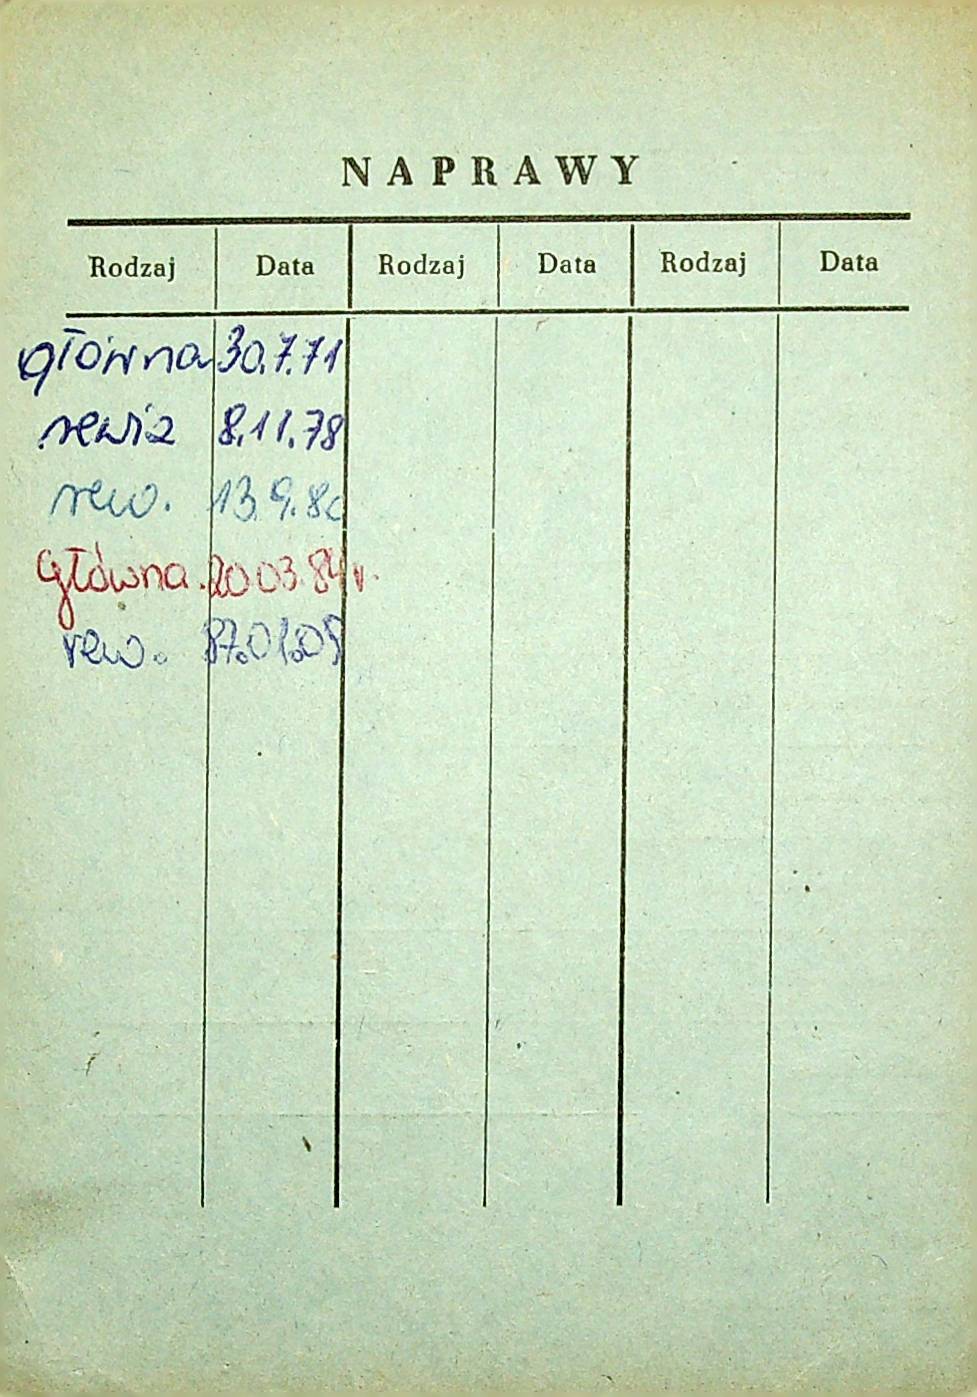 NAPRAWY
Rodzaj Data Rodzaj Data Rodzaj Data
główna 30.7.71
rewiz 8.11.78
rew. 13.9.80
Główna. 20.03.84r.
rew. 87.01.05